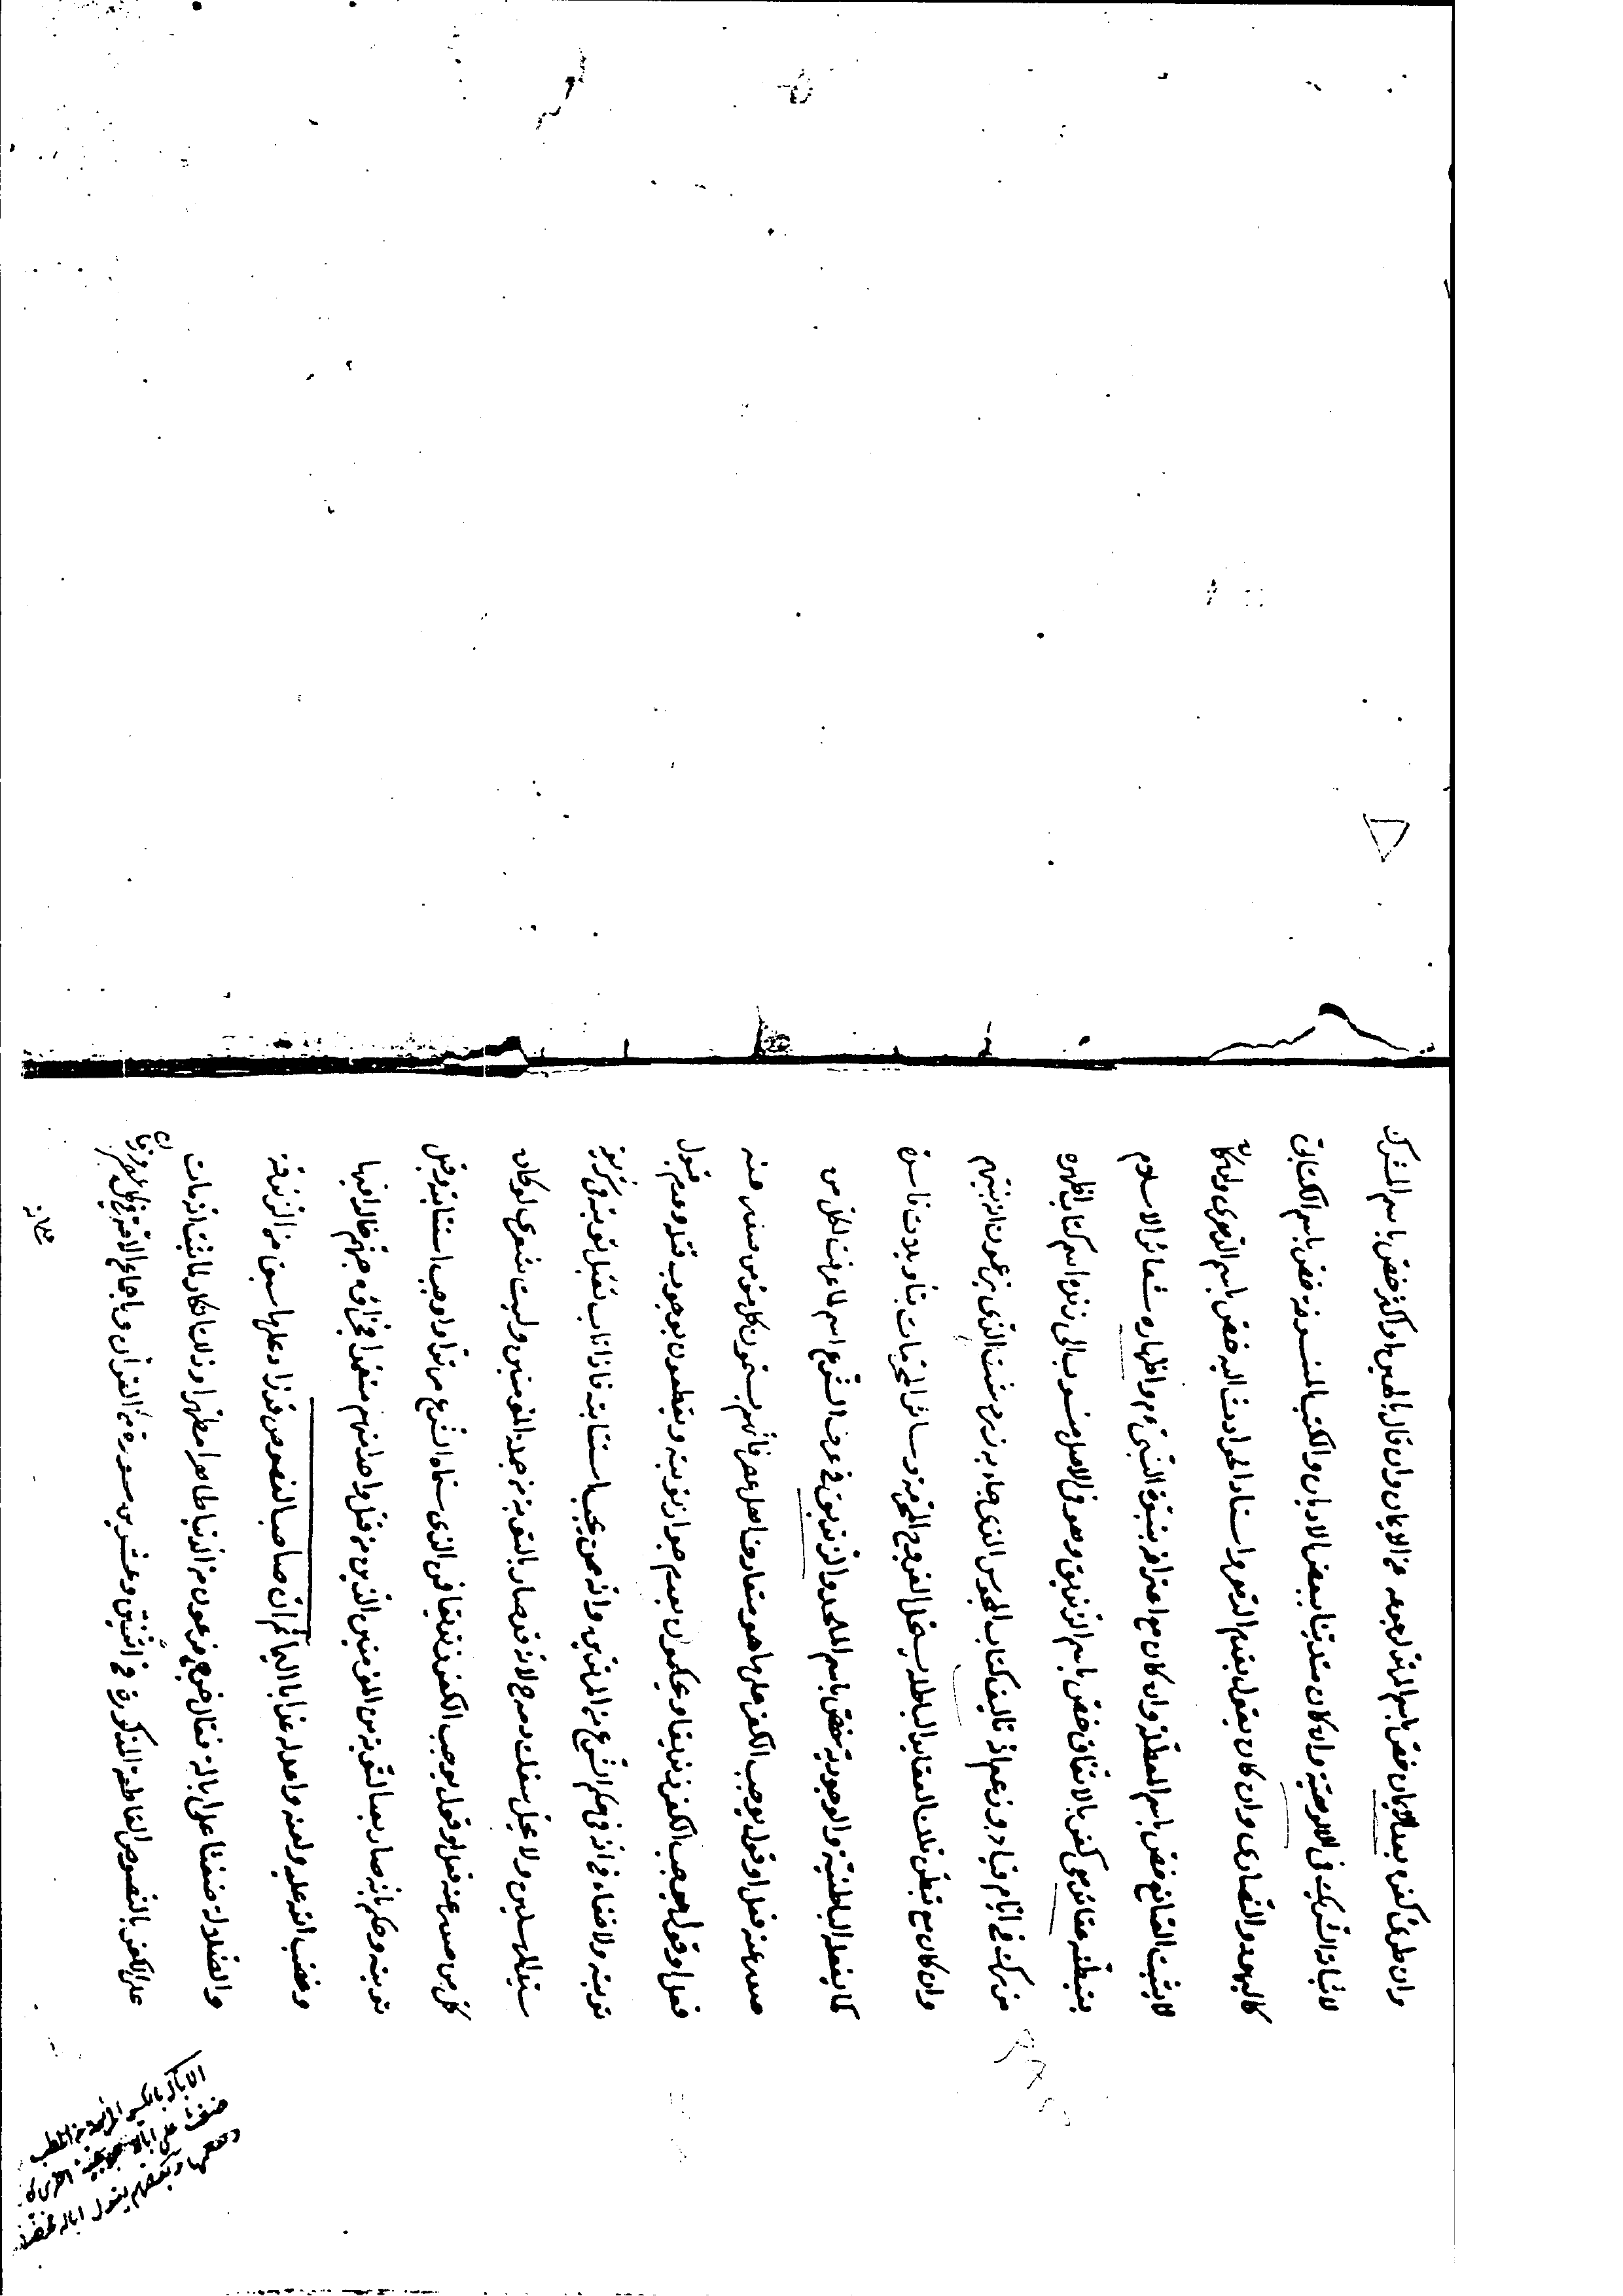 وان طرئ كفره بعد الايمان خص باسم المرتد لرجوعه عن الايمان وان قال بالهين او اكثر خص باسم المشرك
لاثباته الشريك فى الالوهية وان كان متدينا ببعض الاديان والكتب المنسوخة خص باسم الكتابى
كاليهود والنصارى وان كان يقول بقدم الدهر واسناد الحوادث اليه خص باسم الدهرى وان كان
لا يثبت الصانع خص باسم المعطل وان كان مع اعترافه بنبوة النبى عم واظهاره شعائر الاسلام
يتبطن عقائد هى كفر بالاتفاق خص باسم الزنديق وهو فى الاصل منسوب الى زند اسم كتاب اظهره
مزدك فى ايام قباد وزعم انه تأليف كتاب المجوس الذى جاء به زردشت الذى يزعمون انه نبيهم
وان كان مع تبطن تلك العقائد الباطلة يستحل الفروج المحرمة وسائر المحرمات بتأويلات فاسدة
كما يفعله الباطنية والوجودية خص باسم الملحد والزنديق فى عرف الشرع اسم لما عرفت لكل من
صدر عنه فعل او قول يوجب الكفر على ما هو متعارف اهل عصر فانهم يسمون كل مؤمن صدر عنه
فعل او قول يوجب الكفر زنديقا ويحكمون بعدم جواز توبته ويقطعون بوجوب قتله وعدم قبول
توبته ولا خفاء فى انه فى حكم الشرع من المرتدين وانه ممن يجب استتابته فاذا تاب تقبل توبته فى
سبيل المسلمين ولا يحل سفك دمه لانه قد صار بالتوبة من جملة المؤمنين وليت شعرى لو كان
كل من صدر عنه فعل او قول يوجب الكفر زنديقا فمن الذى سماه الشرع مرتدا واوجب استتابته وقبل
توبته وحكم بانه صار بعد التوبة من المؤمنين الذين من قتل واحدا منهم متعمدا فجزاؤه جهنم خالدا فيها
وغضب الله عليه ولعنه واعد له عذابا اليما ثم ان صاحب الفصوص قد زاد على ما سبق من الزندقة
والضلال ضغثا على ابالة فقال خرج فرعون من الدنيا طاهرا مطهرا وذلك انكار لما ثبت
على الكفر بالنصوص القاطعة المذكورة فى اثنين وعشرين سورة من القرآن و اجماع الامة
ضغث على ابالة
وبعضهم يقول ابالة مخففا